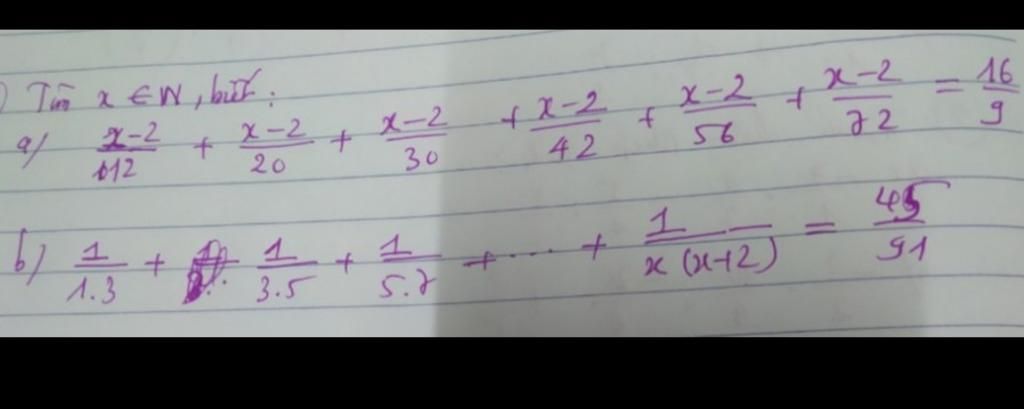 ) Tìm x ∈ N, biết:
a) x-2/12 + x-2/20 + x-2/30 + x-2/42 + x-2/56 + x-2/72 = 16/9
b) 1/1.3 + 1/3.5 + 1/5.7 + ... + 1/x(x+2) = 45/91